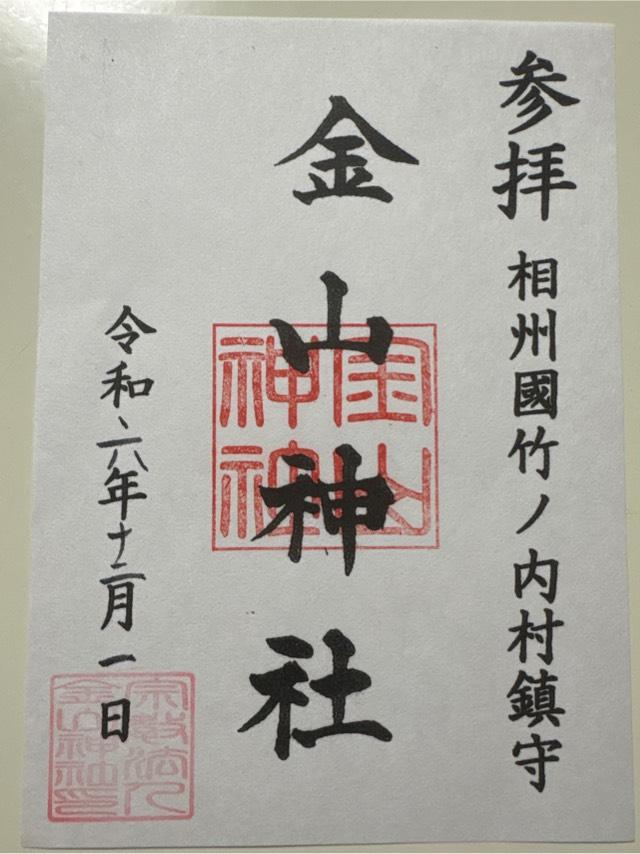 参拝 相州國竹ノ内村鎮守
金山神社
金山神社
令和六年十二月一日
宗教法人金山神社印